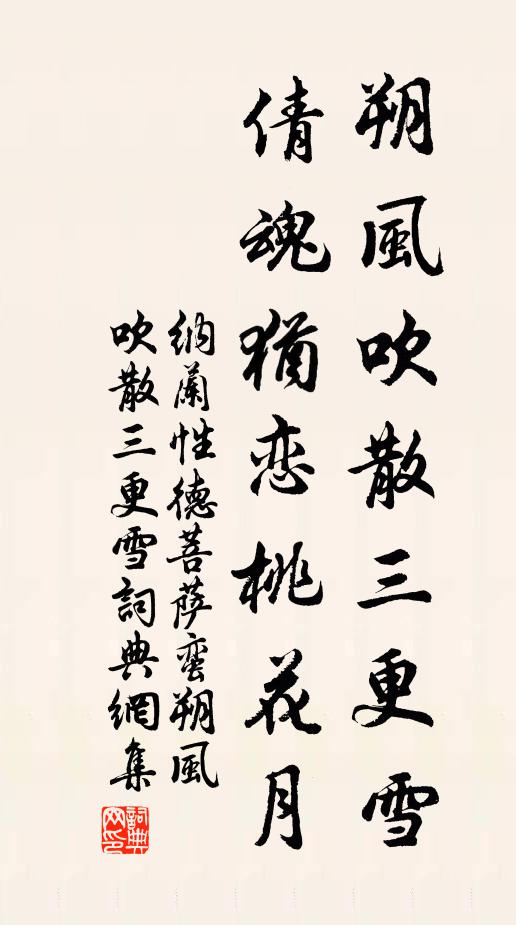 朔風吹散三更雪
倩魂猶恋桃花月
納蘭性德菩薩蛮朔風
吹散三更雪詞典網集
詞典
网印